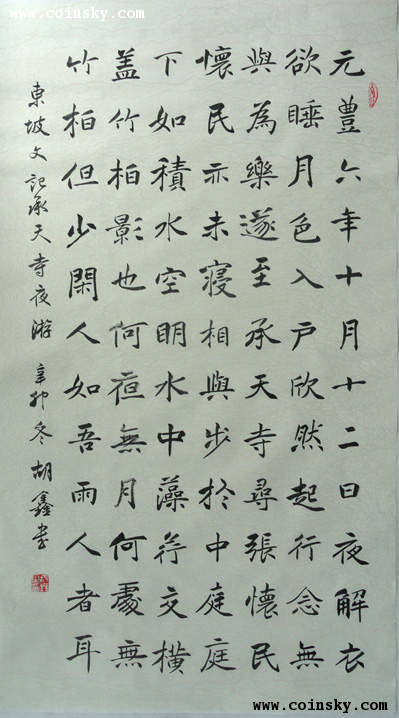 www.coinsky.com
元豐六年十月十二日夜解衣
欲睡月色入戶欣然起行念無
與為樂遂至承天寺尋張懷民
懷民亦未寢相與步於中庭庭
下如積水空明水中藻荇交橫
蓋竹柏影也何夜無月何處無
竹柏但少閑人如吾兩人者耳
東坡文記承天寺夜游 辛卯冬胡鑫書
www.coinsky.com